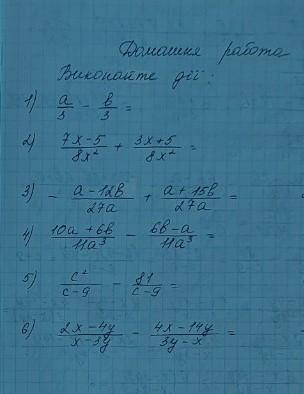 Домашня робота
Виконайте дії:
1) a/3 - b/3 =
2) (7x-5)/(8x²) + (3x+5)/(8x²) =
3) - (a-12b)/(27a) + (a+15b)/(27a) =
4) (10a+6b)/(11a³) - (6b-a)/(11a³) =
5) c²/(c-9) - 81/(c-9) =
6) (2x-4y)/(x-3y) - (4x-14y)/(3y-x) =